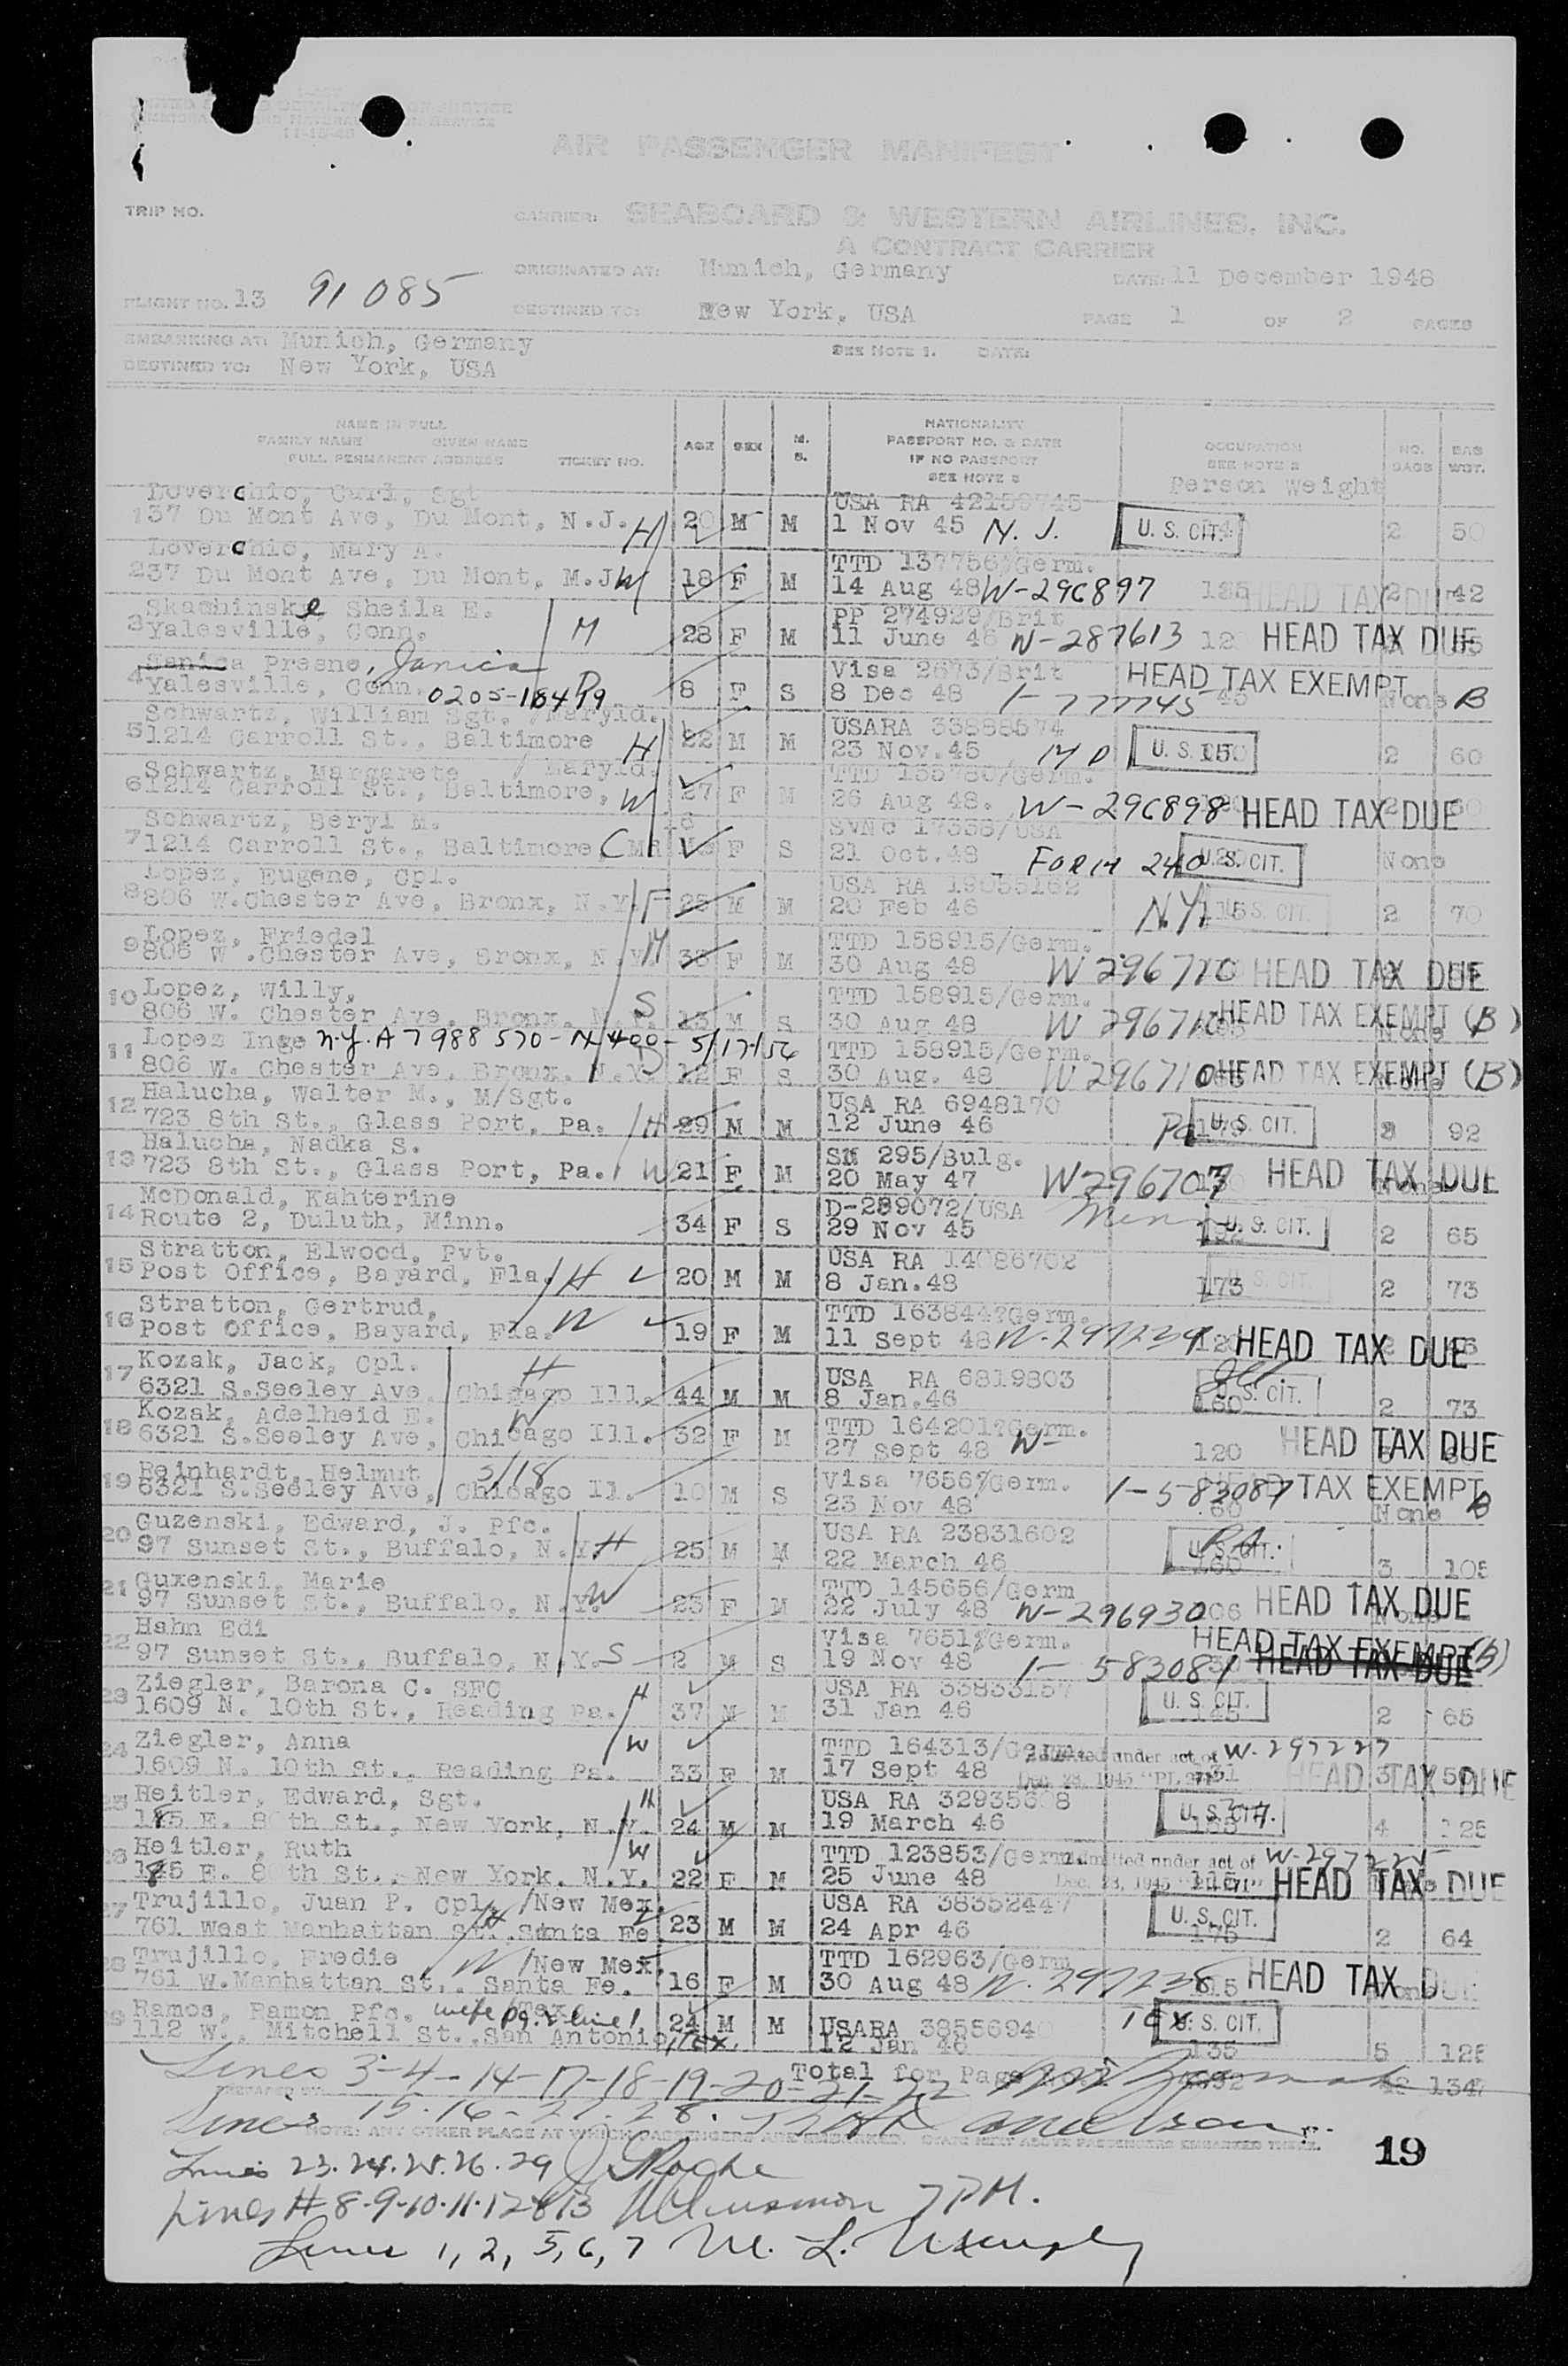 AIR PASSENGER MANIFEST
TRIP NO.
CARRIER: SEABOARD & WESTERN AIRLINES, INC.
A CONTRACT CARRIER
ORIGINATED AT: Munich, Germany DATE: 11 December 1948
FLIGHT NO. 13 91085 DESTINED TO: New York, USA PAGE 1 OF 2 PAGES
EMBARKING AT: Munich, Germany SEE NOTE 1. DATE:
DESTINED TO: New York, USA
NAME IN FULL
FAMILY NAME GIVEN NAME
FULL PERMANENT ADDRESS TICKET NO.
AGE SEX M. S.
NATIONALITY
PASSPORT NO. & DATE
IF NO PASSPORT
SEE NOTE
OCCUPATION
SEE NOTE
Person Weight
NO. BAGS
BAG WGT.
Loverchio, Curi, Sgt USA RA 42159745
1 37 Du Mont Ave, Du Mont, N.J. H 20 M M 1 Nov 45 N.J. U. S. CIT. 2 50
Loverchio, Mary A. TTD 137756/Germ.
2 37 Du Mont Ave, Du Mont, M.J. W 18 F M 14 Aug 48 W-296897 HEAD TAX DUE 2 42
Sheila E. PP 274929/Brit
3 Yalesville, Conn. M 28 F M 11 June 48 W-287613 HEAD TAX DUE
Presne, Janica Visa 2673/Brit HEAD TAX EXEMPT
4 Yalesville, Conn. 0205-18499 8 F S 8 Dec 48 1-777745 None B
Schwartz, William Sgt. /Maryld. USARA 33888574
5 1214 Carroll St., Baltimore H 22 M M 23 Nov.45 MD U. S. CIT. 150 2 60
Schwartz, Margarete / Maryld. TTD 155780/Germ.
6 1214 Carroll St., Baltimore, W 27 F M 26 Aug 48. W-296898 HEAD TAX DUE
Schwartz, Beryl M. SVNC 17338/USA
7 1214 Carroll St., Baltimore, C F S 21 Oct.48 FORM 240 U. S. CIT. None
Lopez, Eugene, Cpl. USA RA 19055162
8 806 W.Chester Ave, Bronx, N.Y. F 25 M M 20 Feb 46 N.Y. U. S. CIT. 2 70
Lopez, Friedel TTD 158915/Germ.
9 806 W .Chester Ave, Bronx, N.Y. M F M 30 Aug 48 W 296710 HEAD TAX DUE
Lopez, Willy, TTD 158915/Germ.
10 806 W. Chester Ave, Bronx, N.Y. S 13 M S 30 Aug 48 W 296710 HEAD TAX EXEMPT (B)
Lopez Inge N.Y. A7988570-N400-5/17/56 TTD 158915/Germ.
11 806 W. Chester Ave, Bronx, N.Y. D 12 F S 30 Aug. 48 W 296710 HEAD TAX EXEMPT (B)
Halucha, Walter M., M/Sgt. USA RA 6948170
12 723 8th St., Glass Port, Pa. H 29 M M 12 June 46 Pa U. S. CIT. 92
Halucha, Nadka S. SM 295/Bulg.
13 723 8th St., Glass Port, Pa. W 21 F M 20 May 47 W296707 HEAD TAX DUE
McDonald, Kahterine D-289072/USA
14 Route 2, Duluth, Minn. 34 F S 29 Nov 45 Minn U. S. CIT. 2 65
Stratton, Elwood, Pvt. USA RA 14086702
15 Post Office, Bayard, Fla. H 20 M M 8 Jan.48 173 U. S. CIT. 2 73
Stratton, Gertrud, TTD 163844?Germ.
16 Post Office, Bayard, Fla. W 19 F M 11 Sept 48 W-297239 HEAD TAX DUE
Kozak, Jack, Cpl. H USA RA 6819803 Ill
17 6321 S.Seeley Ave, Chicago Ill. 44 M M 8 Jan.46 160 U. S. CIT. 2 73
Kozak, Adelheid E. W TTD 164201?Germ.
18 6321 S.Seeley Ave, Chicago Ill. 32 F M 27 Sept 48 W- 120 HEAD TAX DUE
Reinhardt, Helmut S/18 Visa 7656?/Germ.
19 6321 S.Seeley Ave, Chicago Il. 10 M S 23 Nov 48 1-583087 TAX EXEMPT None B
Guzenski, Edward, J. Pfc. USA RA 23831602
20 97 Sunset St., Buffalo, N.Y. H 25 M M 22 March 46 U. S. CIT. 160 3 105
Guxenski, Marie TTD 145656/Germ
21 97 Sunset St., Buffalo, N.Y. W 23 F M 22 July 48 W-296930 HEAD TAX DUE
Hahn Edi Visa 7651?/Germ. HEAD TAX EXEMPT (B)
22 97 Sunset St., Buffalo, N.Y. S 2 M S 19 Nov 48 1-583081 HEAD TAX DUE
Ziegler, Barona C. SFC USA RA 33833157
23 1609 N. 10th St., Reading Pa. H 37 M M 31 Jan 46 U. S. CIT. 145 2 65
Ziegler, Anna TTD 164313/Germ. Admitted under act of W-297227
24 1609 N. 10th St., Reading Pa. W 33 F M 17 Sept 48 Dec. 28, 1945 HEAD TAX DUE
Heitler, Edward, Sgt. USA RA 32935608
25 185 E. 80th St., New York, N.Y. H 24 M M 19 March 46 U. S. CIT. 4 125
Heitler, Ruth TTD 123853/Germ. Admitted under act of
26 185 E. 80th St., New York, N.Y. W 22 F M 25 June 48 Dec. 28, 1945 HEAD TAX DUE
Trujillo, Juan P. Cpl. /New Mex. USA RA 38352447
27 761 West Manhattan St., Santa Fe H 23 M M 24 Apr 46 U. S. CIT. 175 2 64
Trujillo, Fredie /New Mex. TTD 162963/Germ
28 761 W.Manhattan St., Santa Fe. W 16 F M 30 Aug 48 W-297238 HEAD TAX DUE
Ramos, Ramon Pfc. wife pg. 2 line 1 USARA 38556940
29 112 W., Mitchell St., San Antonio, Tex. 24 M M 12 Jan 46 Tex U. S. CIT. 135 5 125
Lines 3-4-14-17-18-19-20-21-22 Total for Page
Lines 15-16-27-28.
NOTE: ANY OTHER PLACE AT WHICH PASSENGERS ARE EMBARKED,
19
Lines 23.24.25.26.29 J Roche
Lines # 8-9-10-11-12&13 7 PM.
Lines 1, 2, 5, 6, 7 M. L.